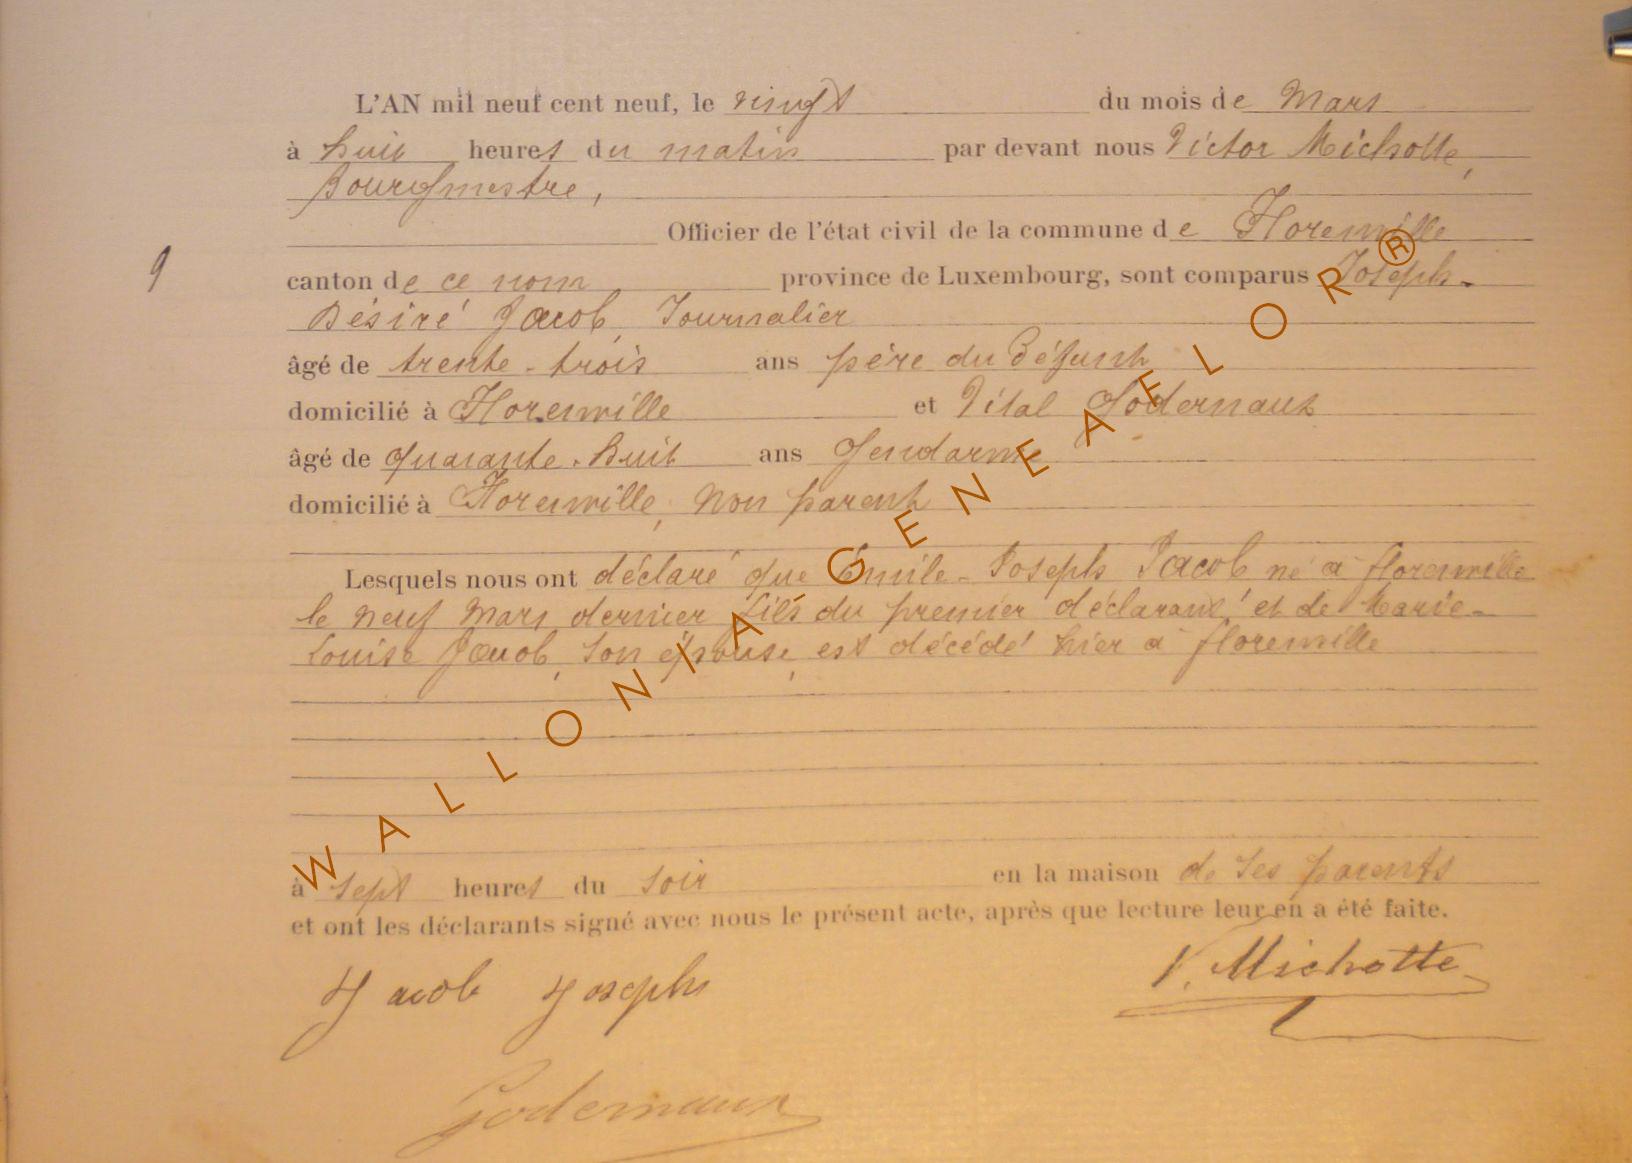 L'AN mil neuf cent neuf, le vingt du mois de Mars
à huit heures du matin par devant nous Victor Michotte,
Bourgmestre,
Officier de l'état civil de la commune de Florenville
9
canton de ce nom province de Luxembourg, sont comparus Joseph-
Désiré Jacob, Journalier
âgé de trente-trois ans père du défunt
domicilié à Florenville et Vital Godernaux
âgé de quarante-huit ans Gendarme
domicilié à Florenville, non parent
Lesquels nous ont déclaré que Émile-Joseph Jacob né à florenville
le neuf Mars dernier fils du premier déclarant et de Marie-
Louise Jacob, son épouse, est décédé hier à florenville
à sept heures du soir en la maison de ses parents
et ont les déclarants signé avec nous le présent acte, après que lecture leur en a été faite.
Jacob Joseph V. Michotte
Godernaux
WALLONIA GENEAFLOR®